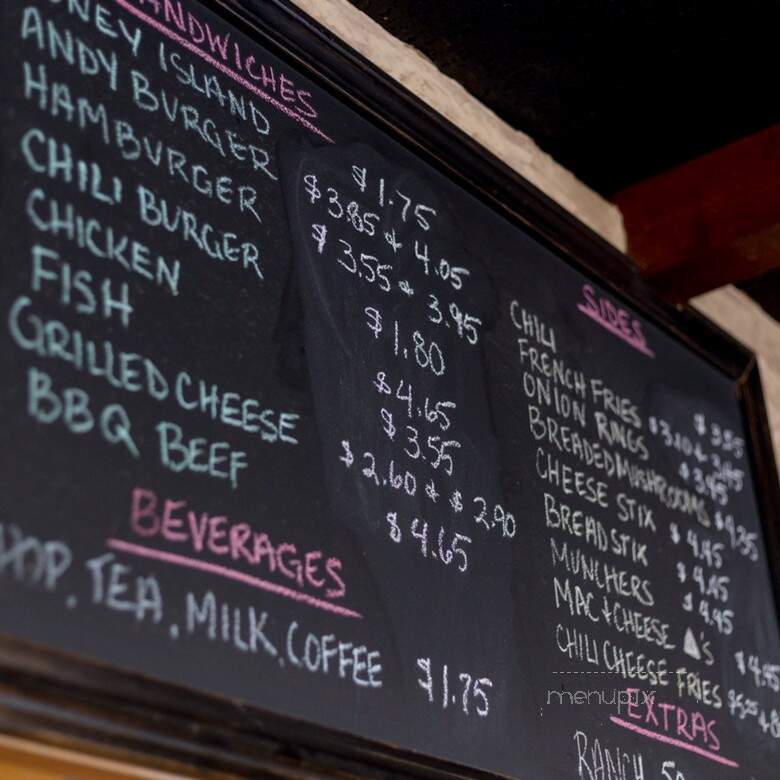 SANDWICHES
CONEY ISLAND $1.75
ANDY BURGER $3.85 & 4.05
HAMBURGER $3.55 & 3.95
CHILI BURGER $1.80
CHICKEN $4.65
FISH $3.55
GRILLED CHEESE $2.60 & $2.90
BBQ BEEF $4.65
BEVERAGES
POP, TEA, MILK, COFFEE $1.75
SIDES
CHILI
FRENCH FRIES
ONION RINGS $3.95
BREADED MUSHROOMS $4.35
CHEESE STIX $4.45
BREADSTIX $4.45
MUNCHERS $4.45
MAC & CHEESE 's
CHILI CHEESE FRIES
EXTRAS
RANCH
menupix